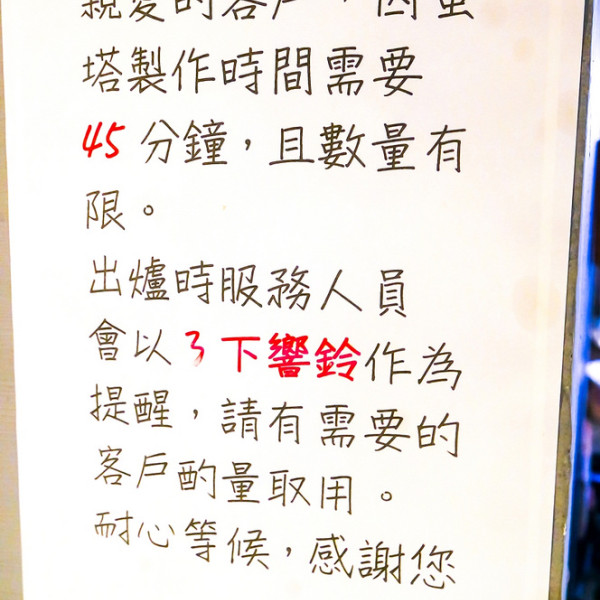 親愛的客戶，因蛋
塔製作時間需要
45分鐘，且數量有
限。
出爐時服務人員
會以3下響鈴作為
提醒，請有需要的
客戶酌量取用。
耐心等候，感謝您